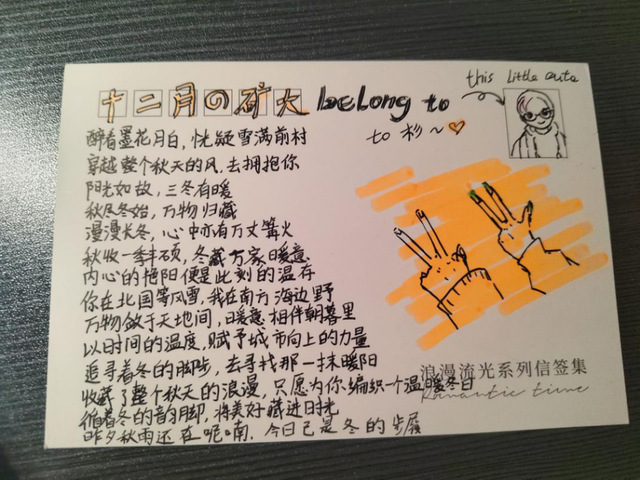 this little cute
十二月の矿大 belong to
to 杉~
醉看墨花月白，恍疑雪满前村
穿越整个秋天的风，去拥抱你
阳光如故，三冬有暖
秋尽冬始，万物归藏
漫漫长冬，心中亦有万丈篝火
秋收一季丰硕，冬藏万家暖意
内心的艳阳便是此刻的温存
你在北国等风雪，我在南方海边野
万物敛于天地间，暖意相伴朝暮里
以时间的温度，赋予城市向上的力量
追寻着冬的脚步，去寻找那一抹暖阳
收藏了整个秋天的浪漫，只愿为你编织一个温暖冬日
循着冬的韵脚，将美好藏进日光
昨夕秋雨还在呢喃，今日已是冬的步履
浪漫流光系列信签集
Romantic time